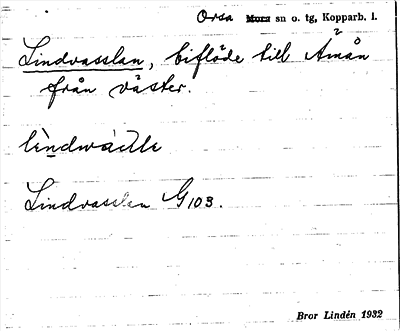 Orsa Mora sn o. tg, Kopparb. l.
Lindvasslan, biflöde till Åmån
från väster.
Lindvasslan G103.
Bror Lindén 1932